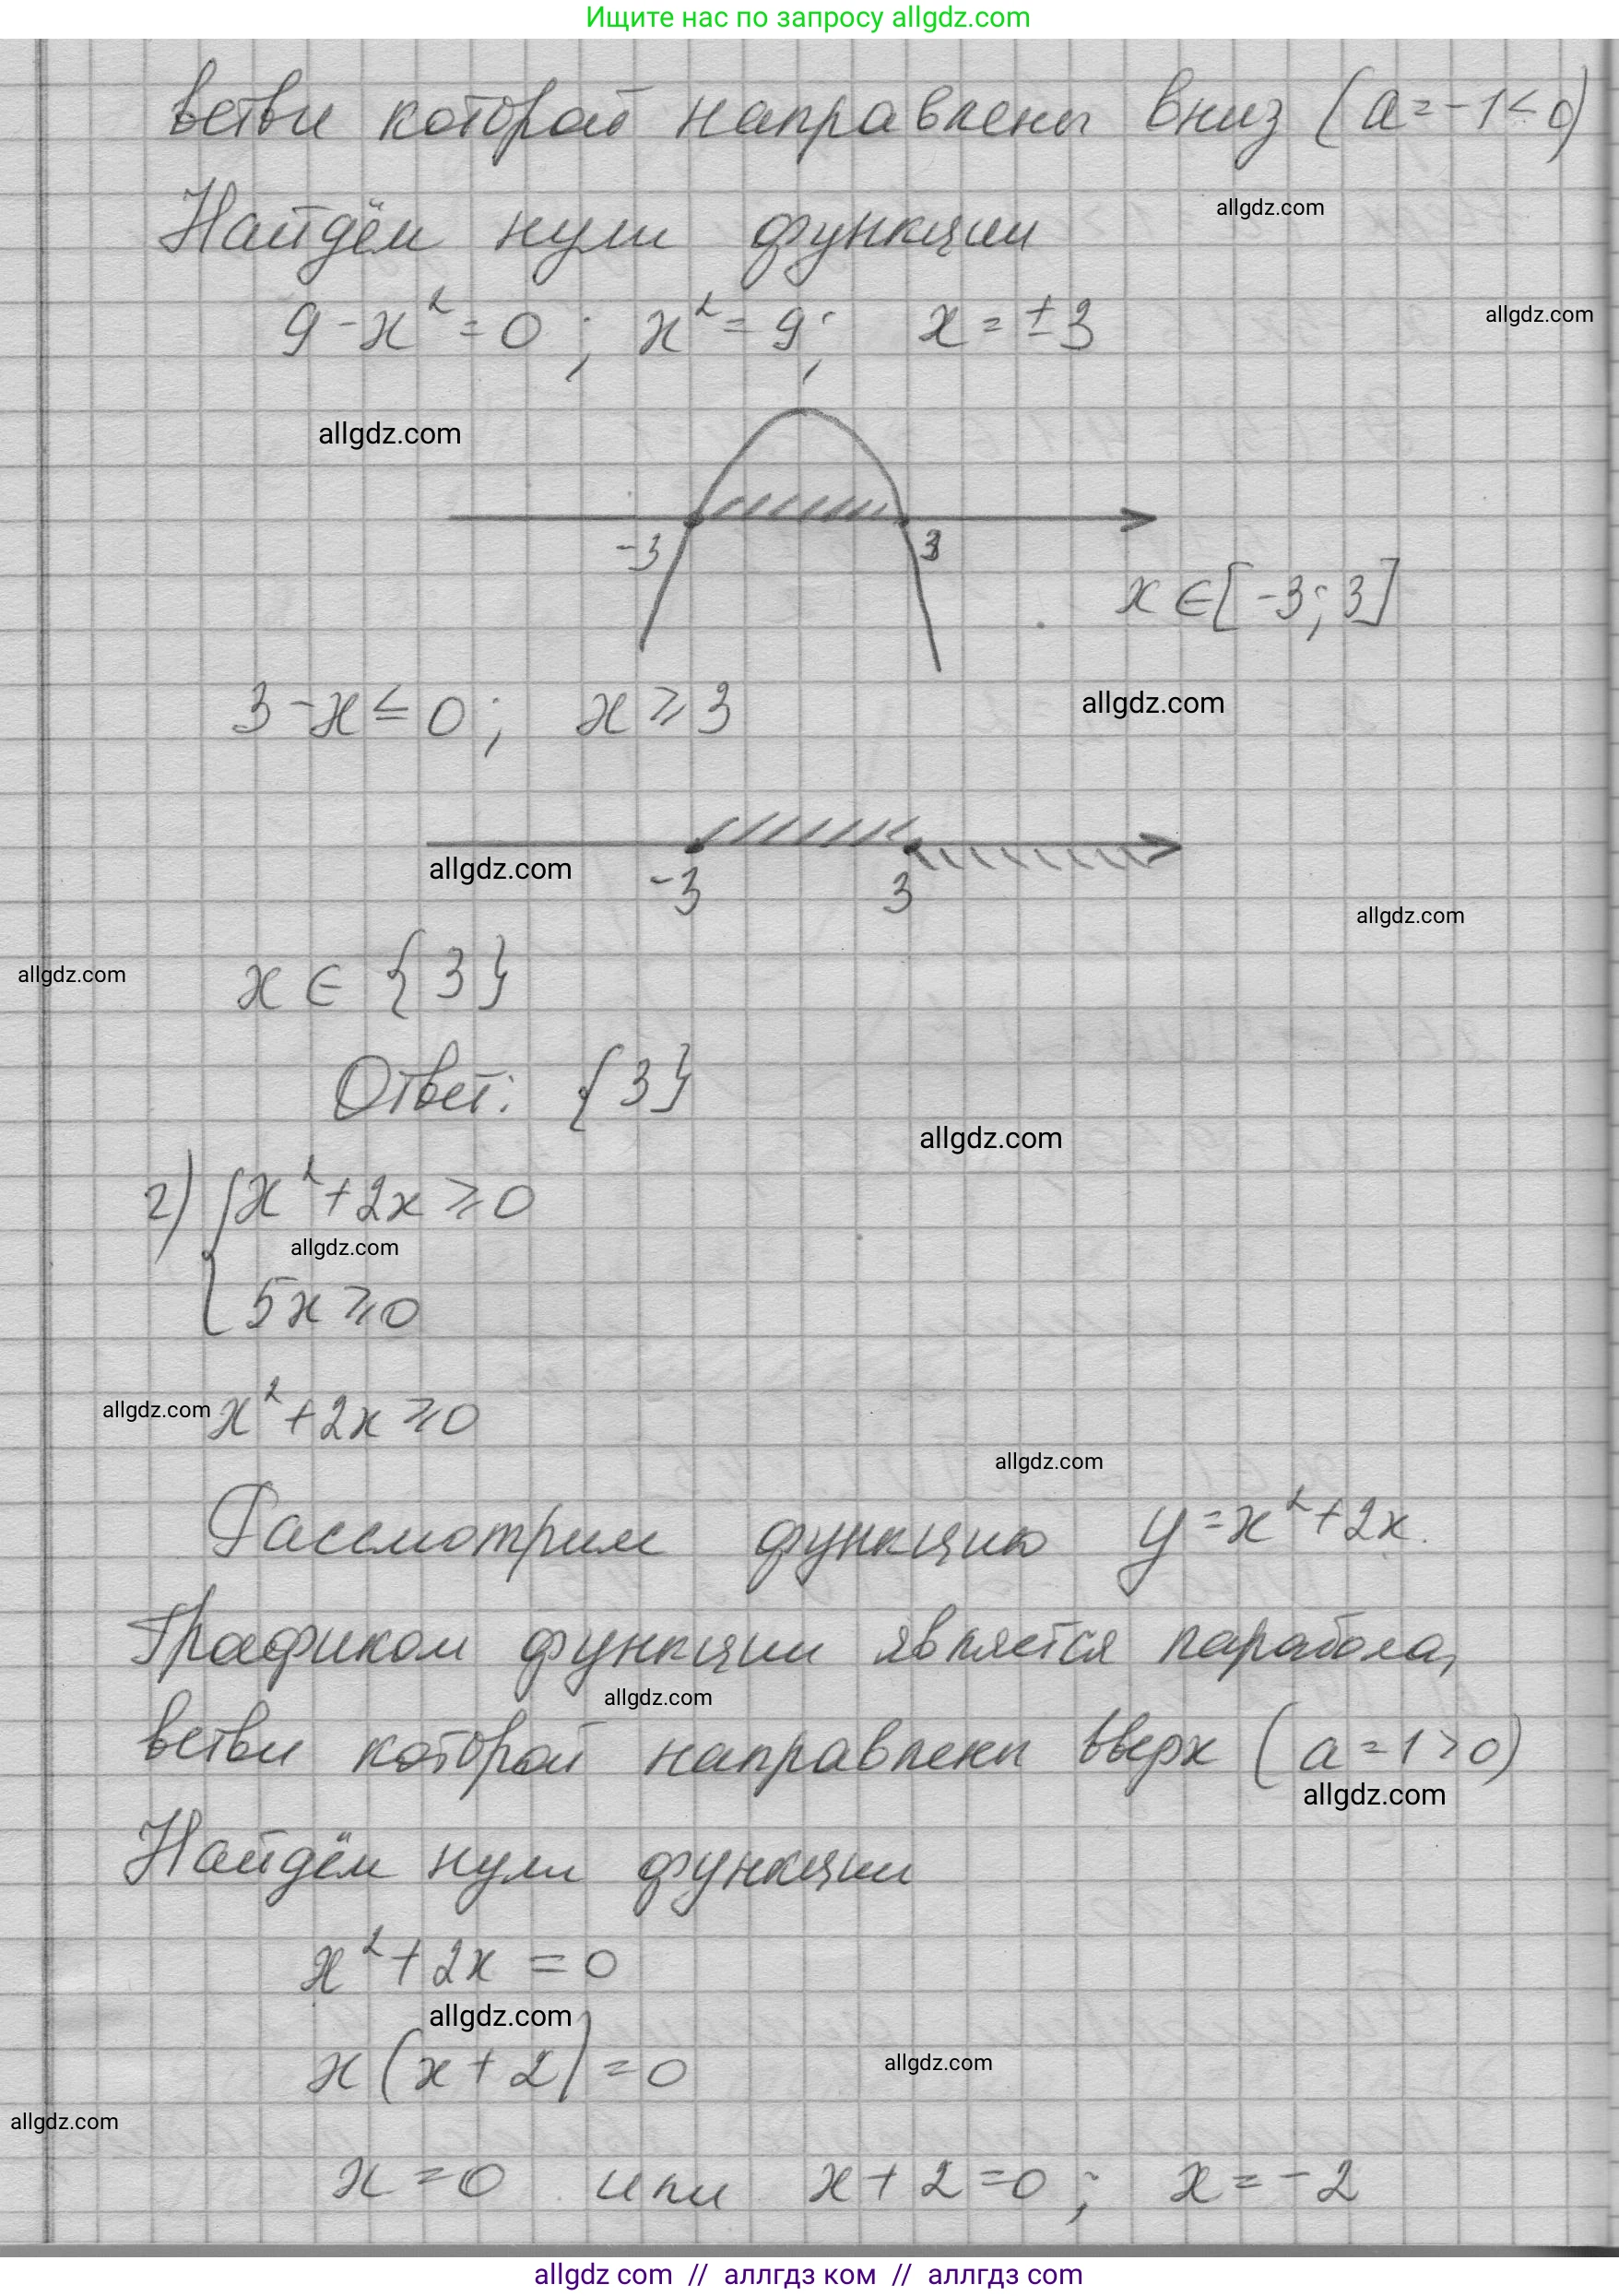 Ищите нас по запросу allgdz.com
ветви которой направлены вниз (a=-1<0)
allgdz.com
Найдём нули функции
allgdz.com
9-x²=0; x²=9; x=±3
allgdz.com
-3 3
x∈[-3;3]
3-x≤0; x≥3
allgdz.com
allgdz.com
-3 3
allgdz.com
allgdz.com
x∈{3}
Ответ: {3}
allgdz.com
г) { x²+2x≥0
allgdz.com
5x≥0
allgdz.com
x²+2x≥0
allgdz.com
Рассмотрим функцию y=x²+2x.
Графиком функции является парабола,
allgdz.com
ветви которой направлены вверх (a=1>0)
allgdz.com
Найдём нули функции
x²+2x=0
allgdz.com
x(x+2)=0
allgdz.com
allgdz.com
x=0 или x+2=0; x=-2
allgdz com // аллгдз ком // аллгдз com